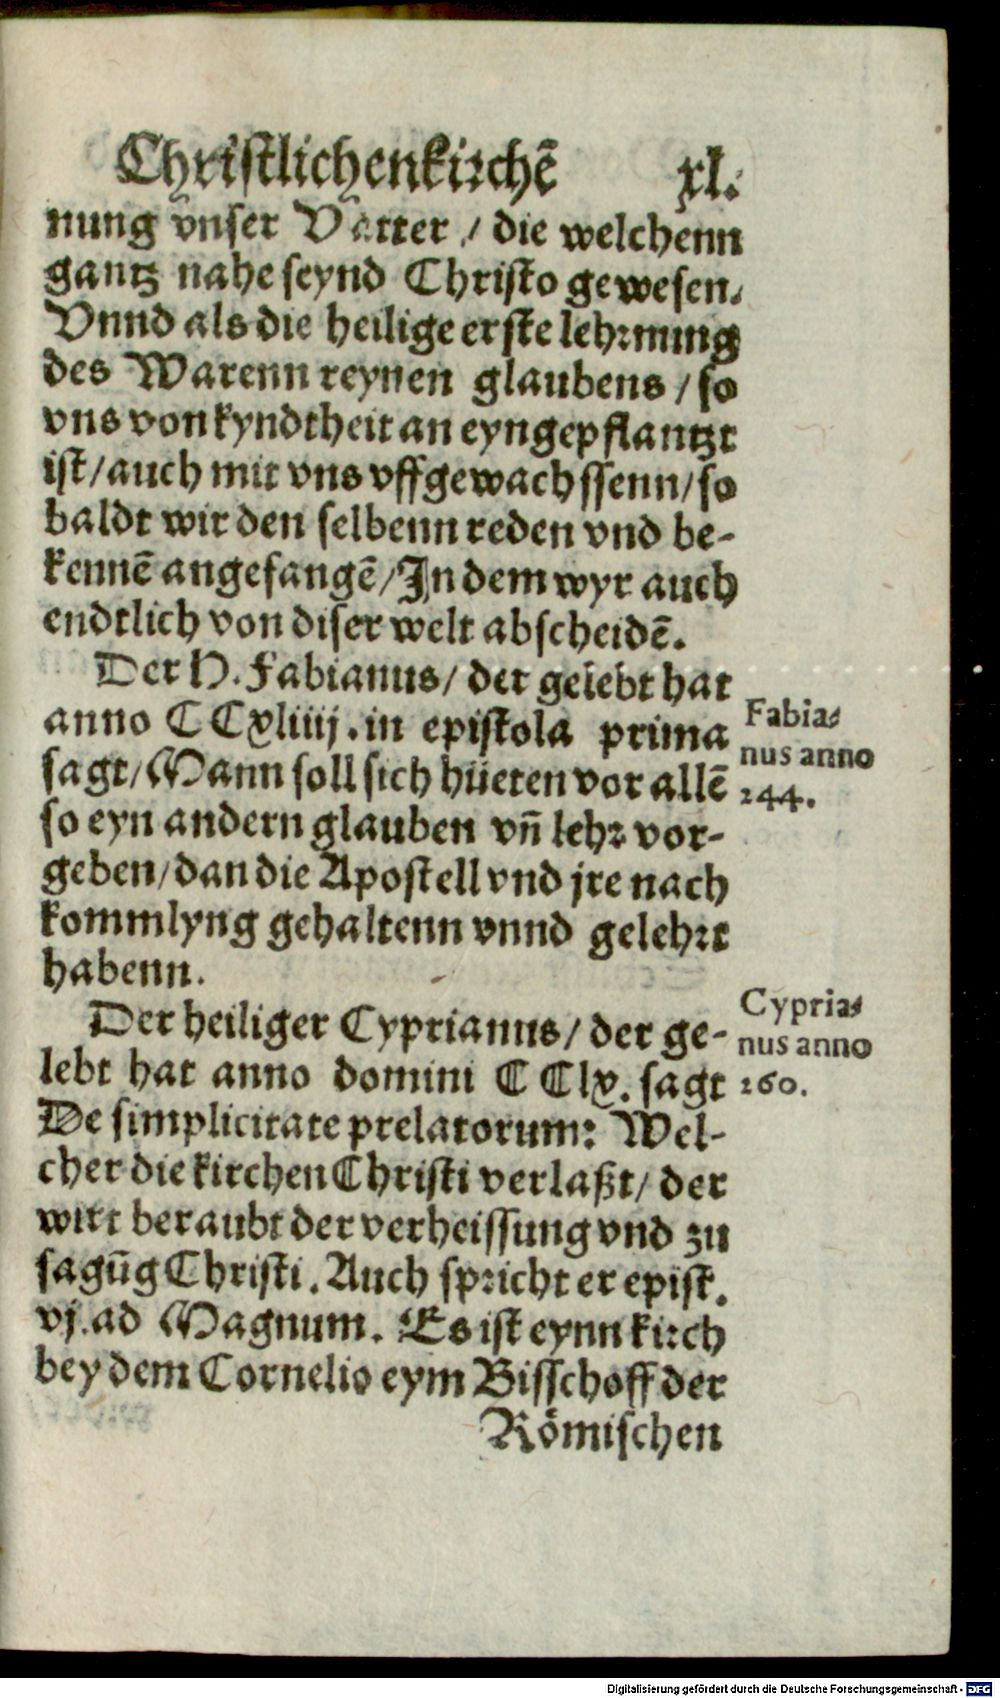 Christlichenkirchẽ xl.
nung vnser Vätter / die welchenn
gantz nahe seynd Christo gewesen.
Vnnd als die heilige erste lehrnung
des Warenn reynen glaubens / so
vns von kyndtheit an eyngepflantzt
ist / auch mit vns vffgewachssenn / so
baldt wir den selbenn reden vnd be-
kennẽ angefangẽ / In dem wyr auch
endtlich von diser welt abscheidẽ.
Der H. Fabianus / der gelebt hat
anno CCxliiij. in epistola prima
sagt / Mann soll sich hüeten vor allẽ
so eyn andern glauben vñ lehr vor-
geben / dan die Apostell vnd jre nach
kommlyng gehaltenn vnnd gelehrt
habenn.
Fabia-
nus anno
244.
Der heiliger Cyprianus / der ge-
lebt hat anno domini CClx. sagt
De simplicitate prelatorum: Wel-
cher die kirchen Christi verlaßt / der
wirt beraubt der verheissung vnd zu
sagũg Christi. Auch spricht er epist.
vj. ad Magnum. Es ist eynn kirch
bey dem Cornelio eym Bisschoff der
Römischen
Cypria-
nus anno
260.
Digitalisierung gefördert durch die Deutsche Forschungsgemeinschaft - DFG